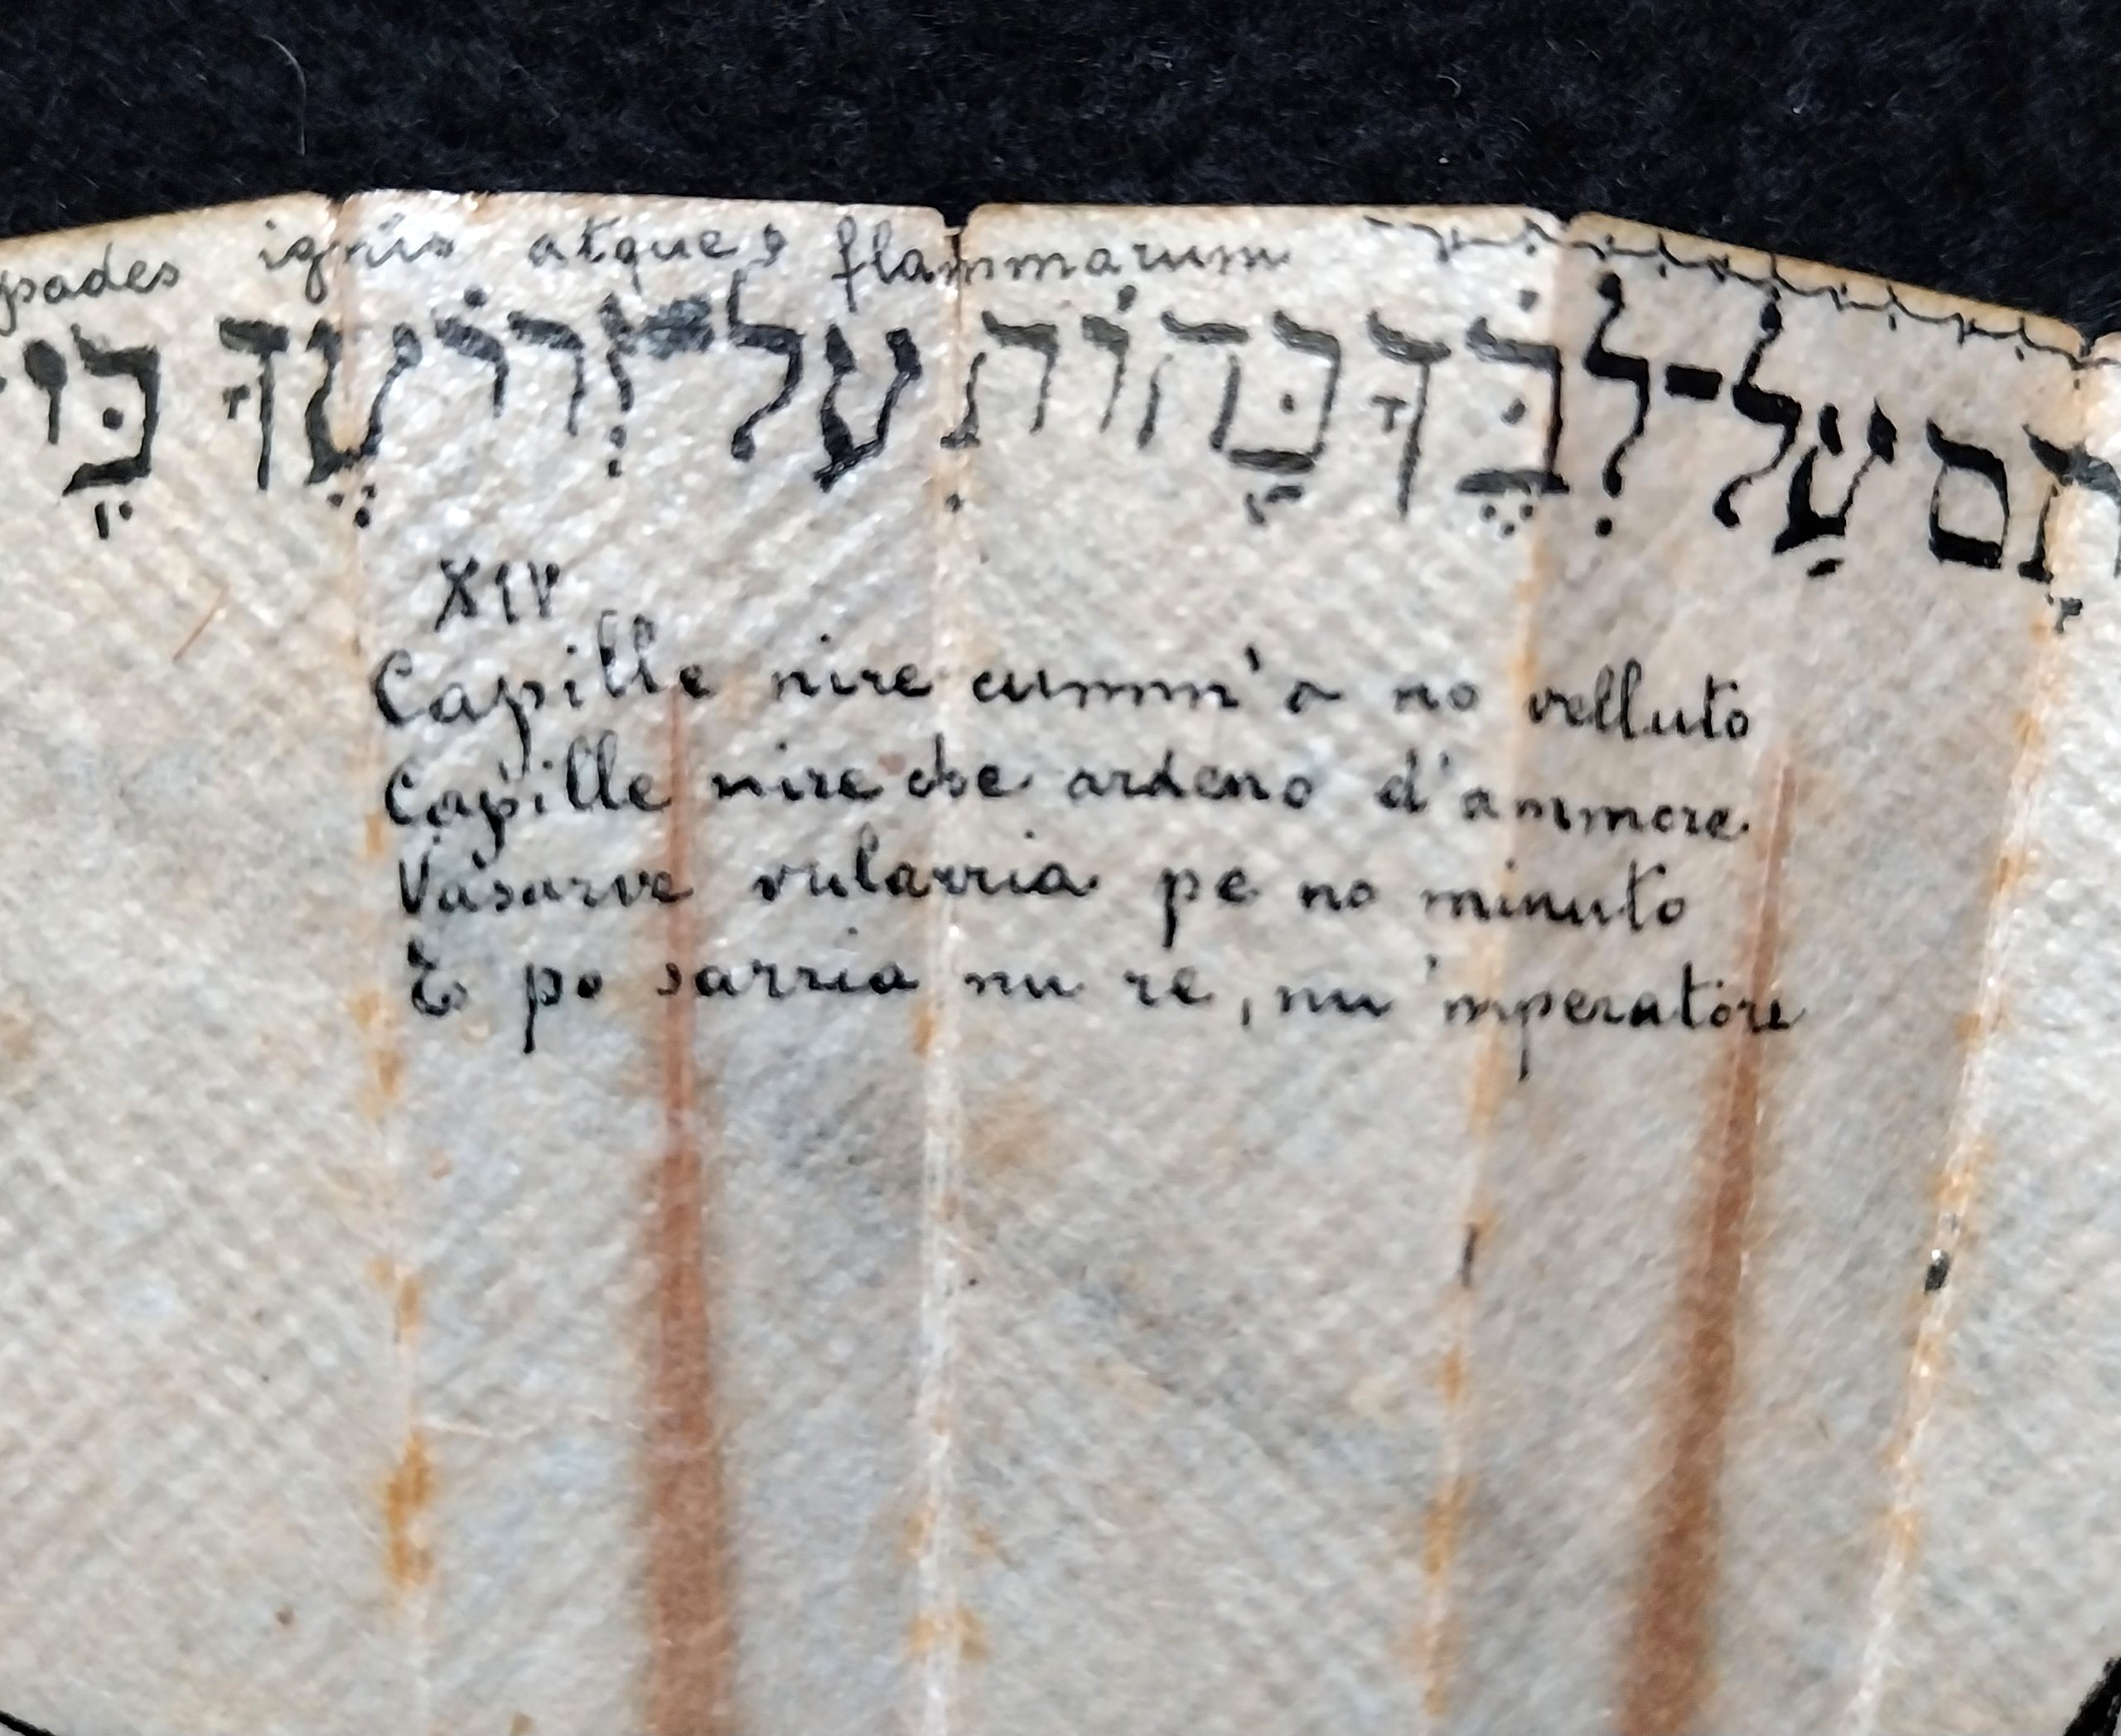 ignis atque flammarum
תָם עַל־לִבֶּךָ כַּחוֹתָ עַל־זְרוֹעֶךָ כִּי
XIV
Capille nire cumm'a no velluto
Capille nire che ardeno d'ammore
Vasarve vularria pe no minuto
E po sarria nu re, nu 'mperatore